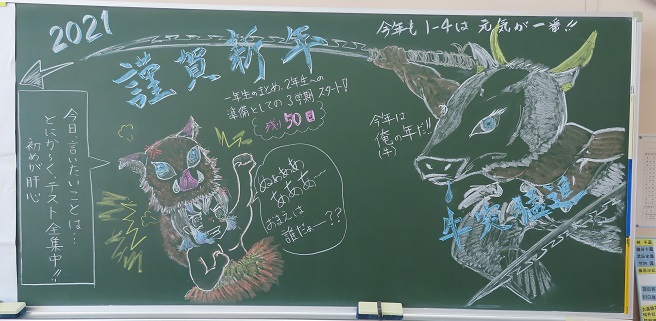 2021
謹賀新年
今年も1-4は 元気が一番!!
一年生のまとめ、2年生への
準備としての3学期 スタート!!
残り50日
今年は
俺の年だ!!
(牛)
今日、言いたいことは…
とにか〜く、テスト全集中!!
初めが肝心
ぬぁぁぁ
あああー
おまえは
誰だぁー??
牛突猛進